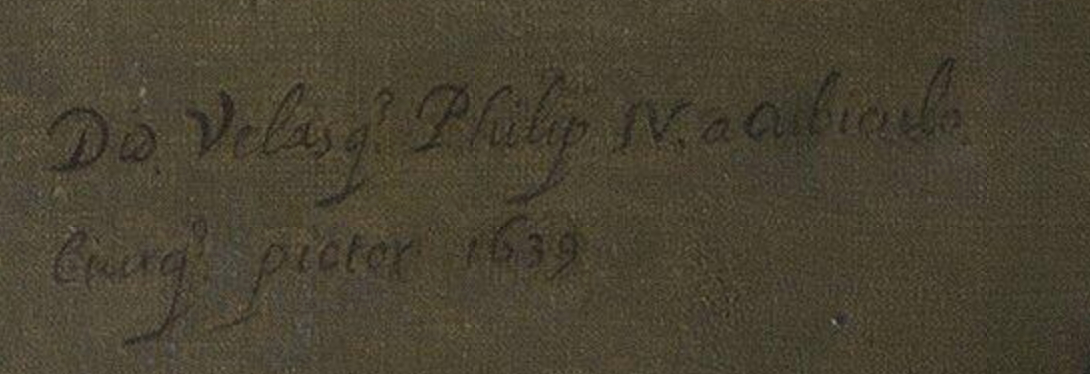 Did. Velasq.^z Philip. IV. a cubiculo.
eiusq.^e pictor 1639